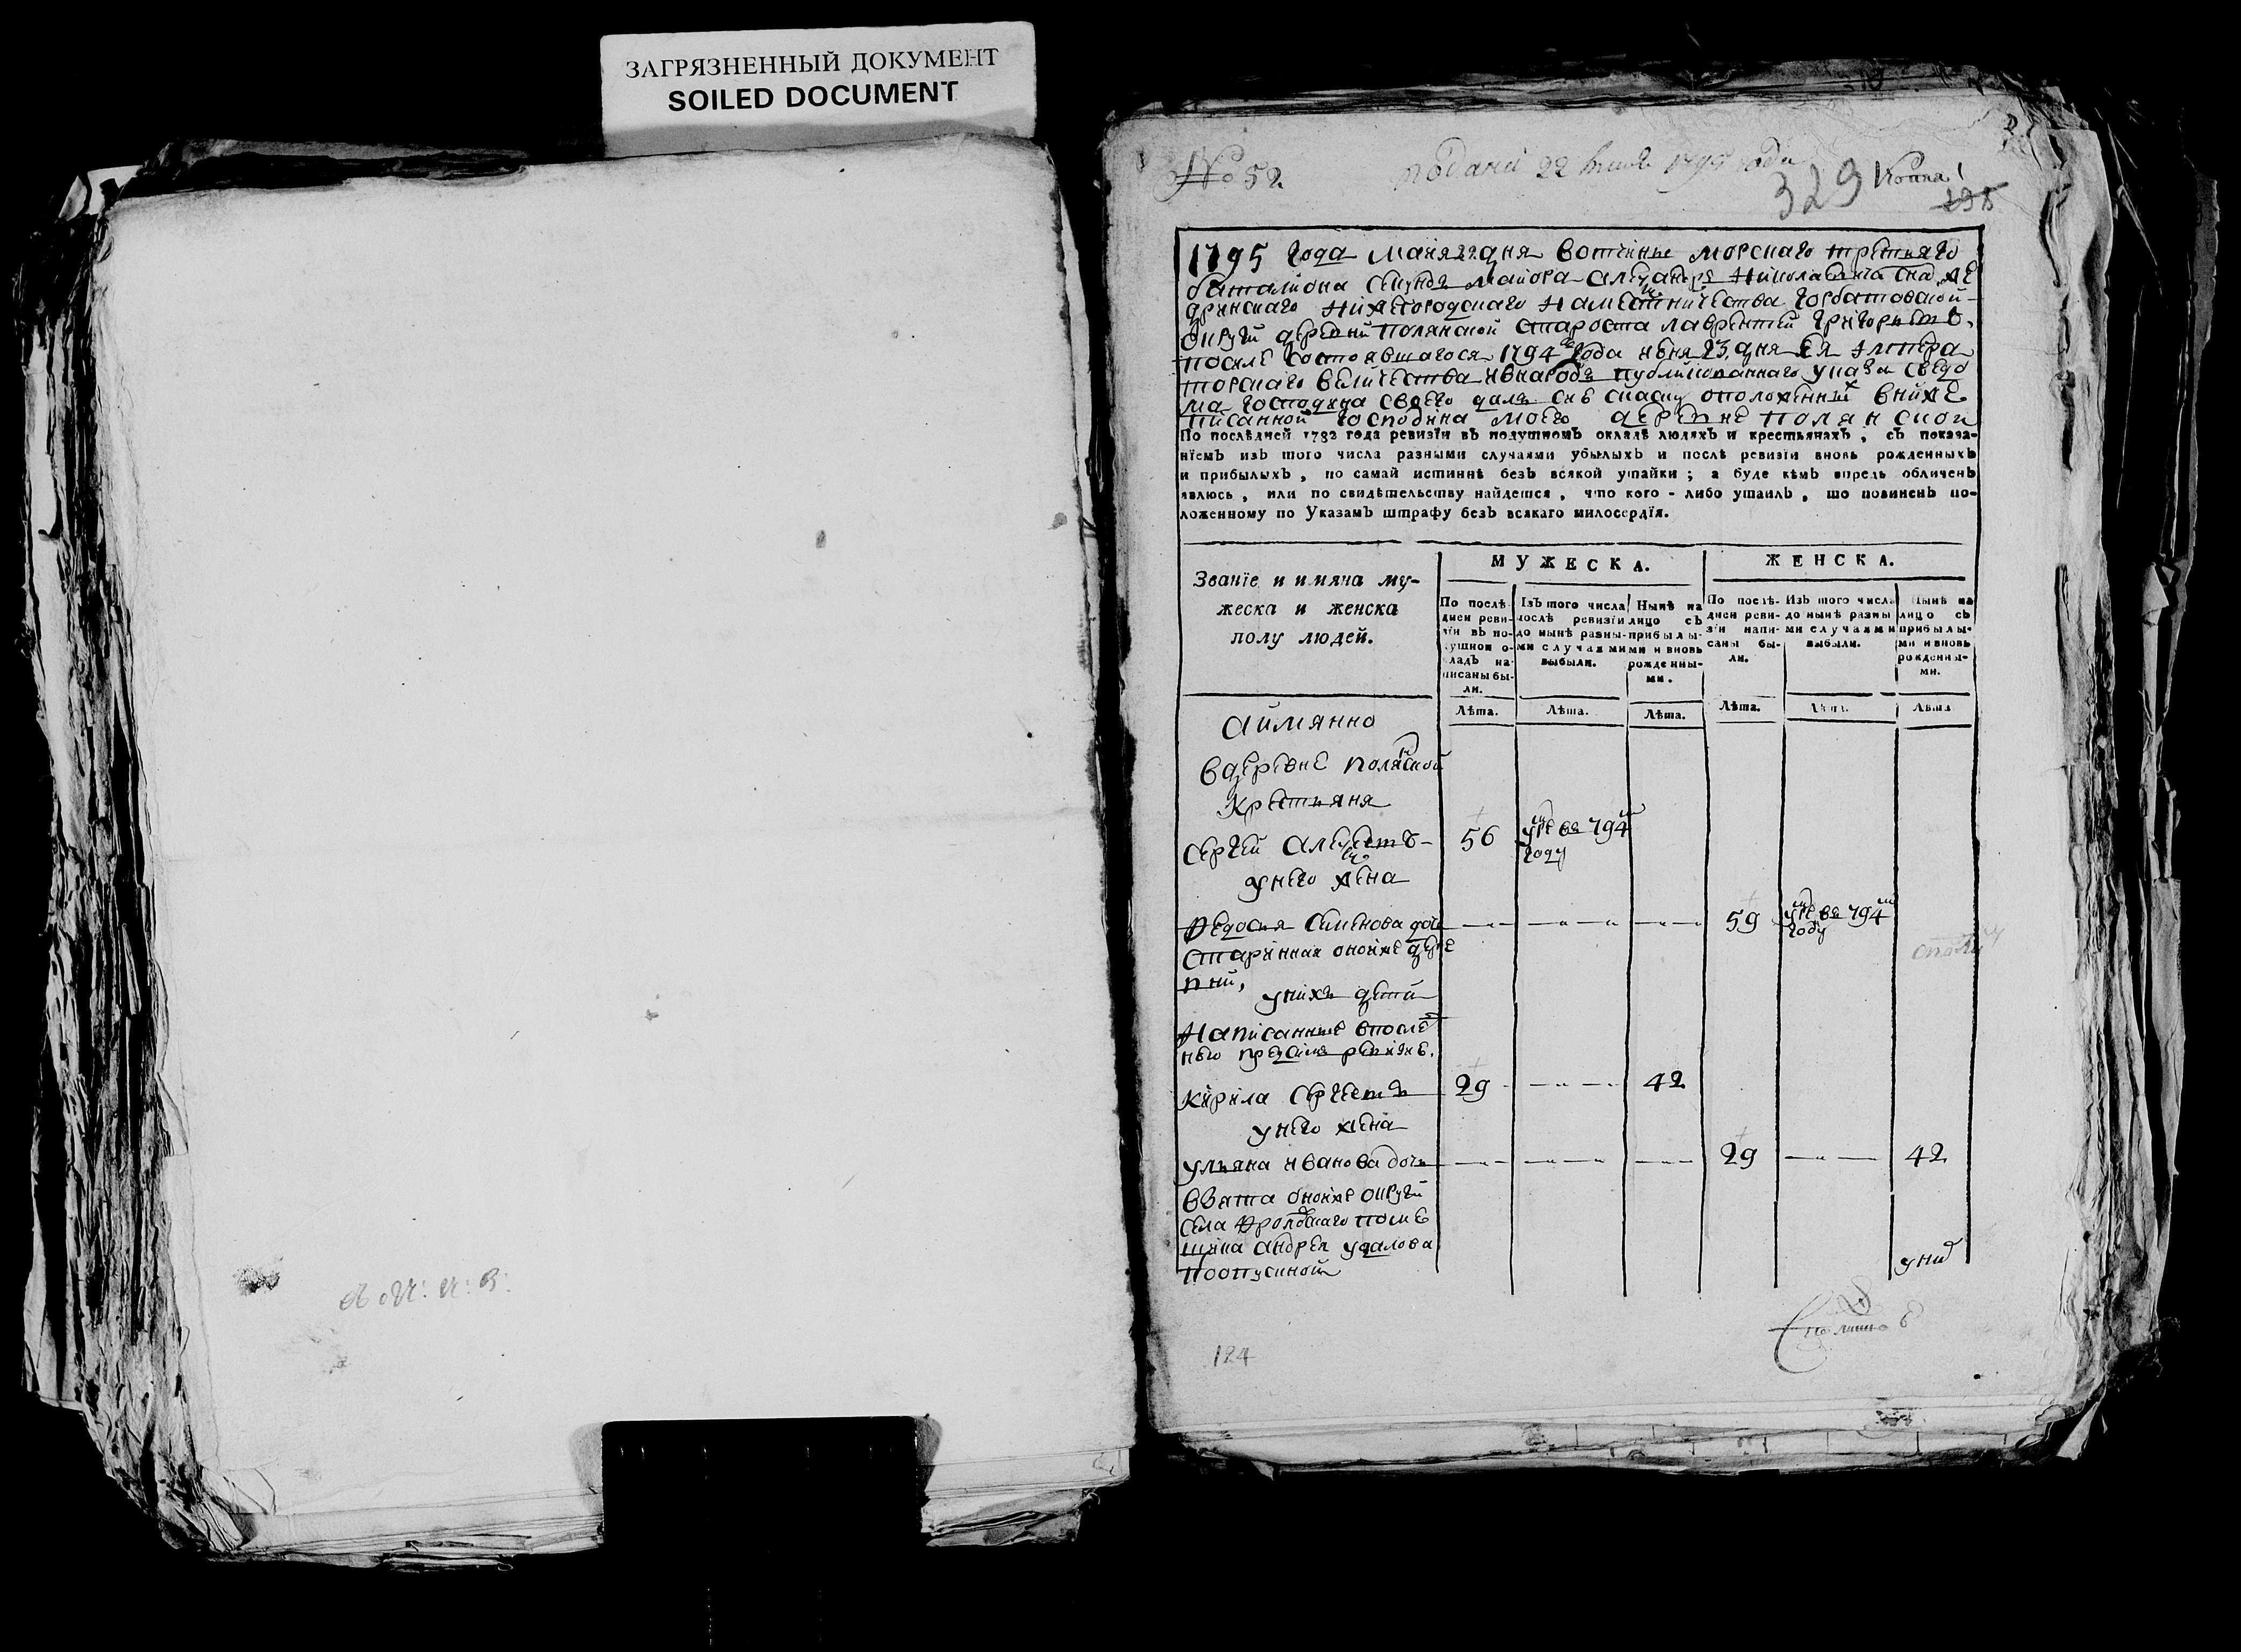 ЗАГРЯЗНЕННЫЙ ДОКУМЕНТ
SOILED DOCUMENT
№ 52 поданы 22 1795 года
329 Копия
1795 года майя 22 дня вотчины морскаго третьяго
баталиона секундъ маиора александра николаева сна
Нижегородскаго наместничества горбатовской
округи деревни полянской староста лаврентей григорьевъ
после состоявшагося 1794 года июня 23 дня Ея Импера
торскаго величества и внародъ публикованнаго указа сведо
ма господина своего далъ сиѣ скаску оположенныхъ вниже
писанной господина моего деревне полянской
По послѣдней 1782 года ревизїи въ подушномъ окладѣ людяхъ и крестьянахъ, съ показа-
нїемъ изъ того числа разными случаями убылыхъ и послѣ ревизїи вновь рожденныхъ
и прибылыхъ, по самой истиннѣ безъ всякой утайки; а буде кѣмъ впредь обличенъ
явлюсь, или по свидѣтельству найдется, что кого-либо утаилъ, то повиненъ по-
ложенному по Указамъ штрафу безъ всякаго милосердїя.
Званїе и имяна му-
жеска и женска
полу людей.
МУЖЕСКА.
ЖЕНСКА.
По послѣ-
дней реви-
зїи въ по-
душной о-
кладъ на-
писаны бы-
ли.
Изъ того числа
послѣ ревизїи
до нынѣ разны-
ми случаями
выбыли.
Нынѣ на
лицо съ
прибылы-
ми и вновь
рожденны-
ми.
По послѣ-
дней реви-
зїи напи-
саны бы-
ли.
Изъ того числа
до нынѣ разны
ми случаями
выбыли.
Нынѣ на
лицо съ
прибылы-
ми и вновь
рожденны-
ми.
Лѣта. Лѣта. Лѣта. Лѣта. Лѣта. Лѣта
Аймянно
вдеревне полянской
Крестьяня
Сергей Алексеевъ 56 умре въ 794м
году
унего жена
Федосия Семенова дочь 59 умре въ 794м
году
старинная оной же дере
вни,
унихъ дети
Написанные впослед
нею пред симъ ревизиѣ.
Кирила Сергеевъ 29 42
унего жена
ульяна иванова дочь 29 42
взята оной же округи
села Фроловскаго поме
щика андрея удалова
поотпускной
унихъ
А: И: В:
124